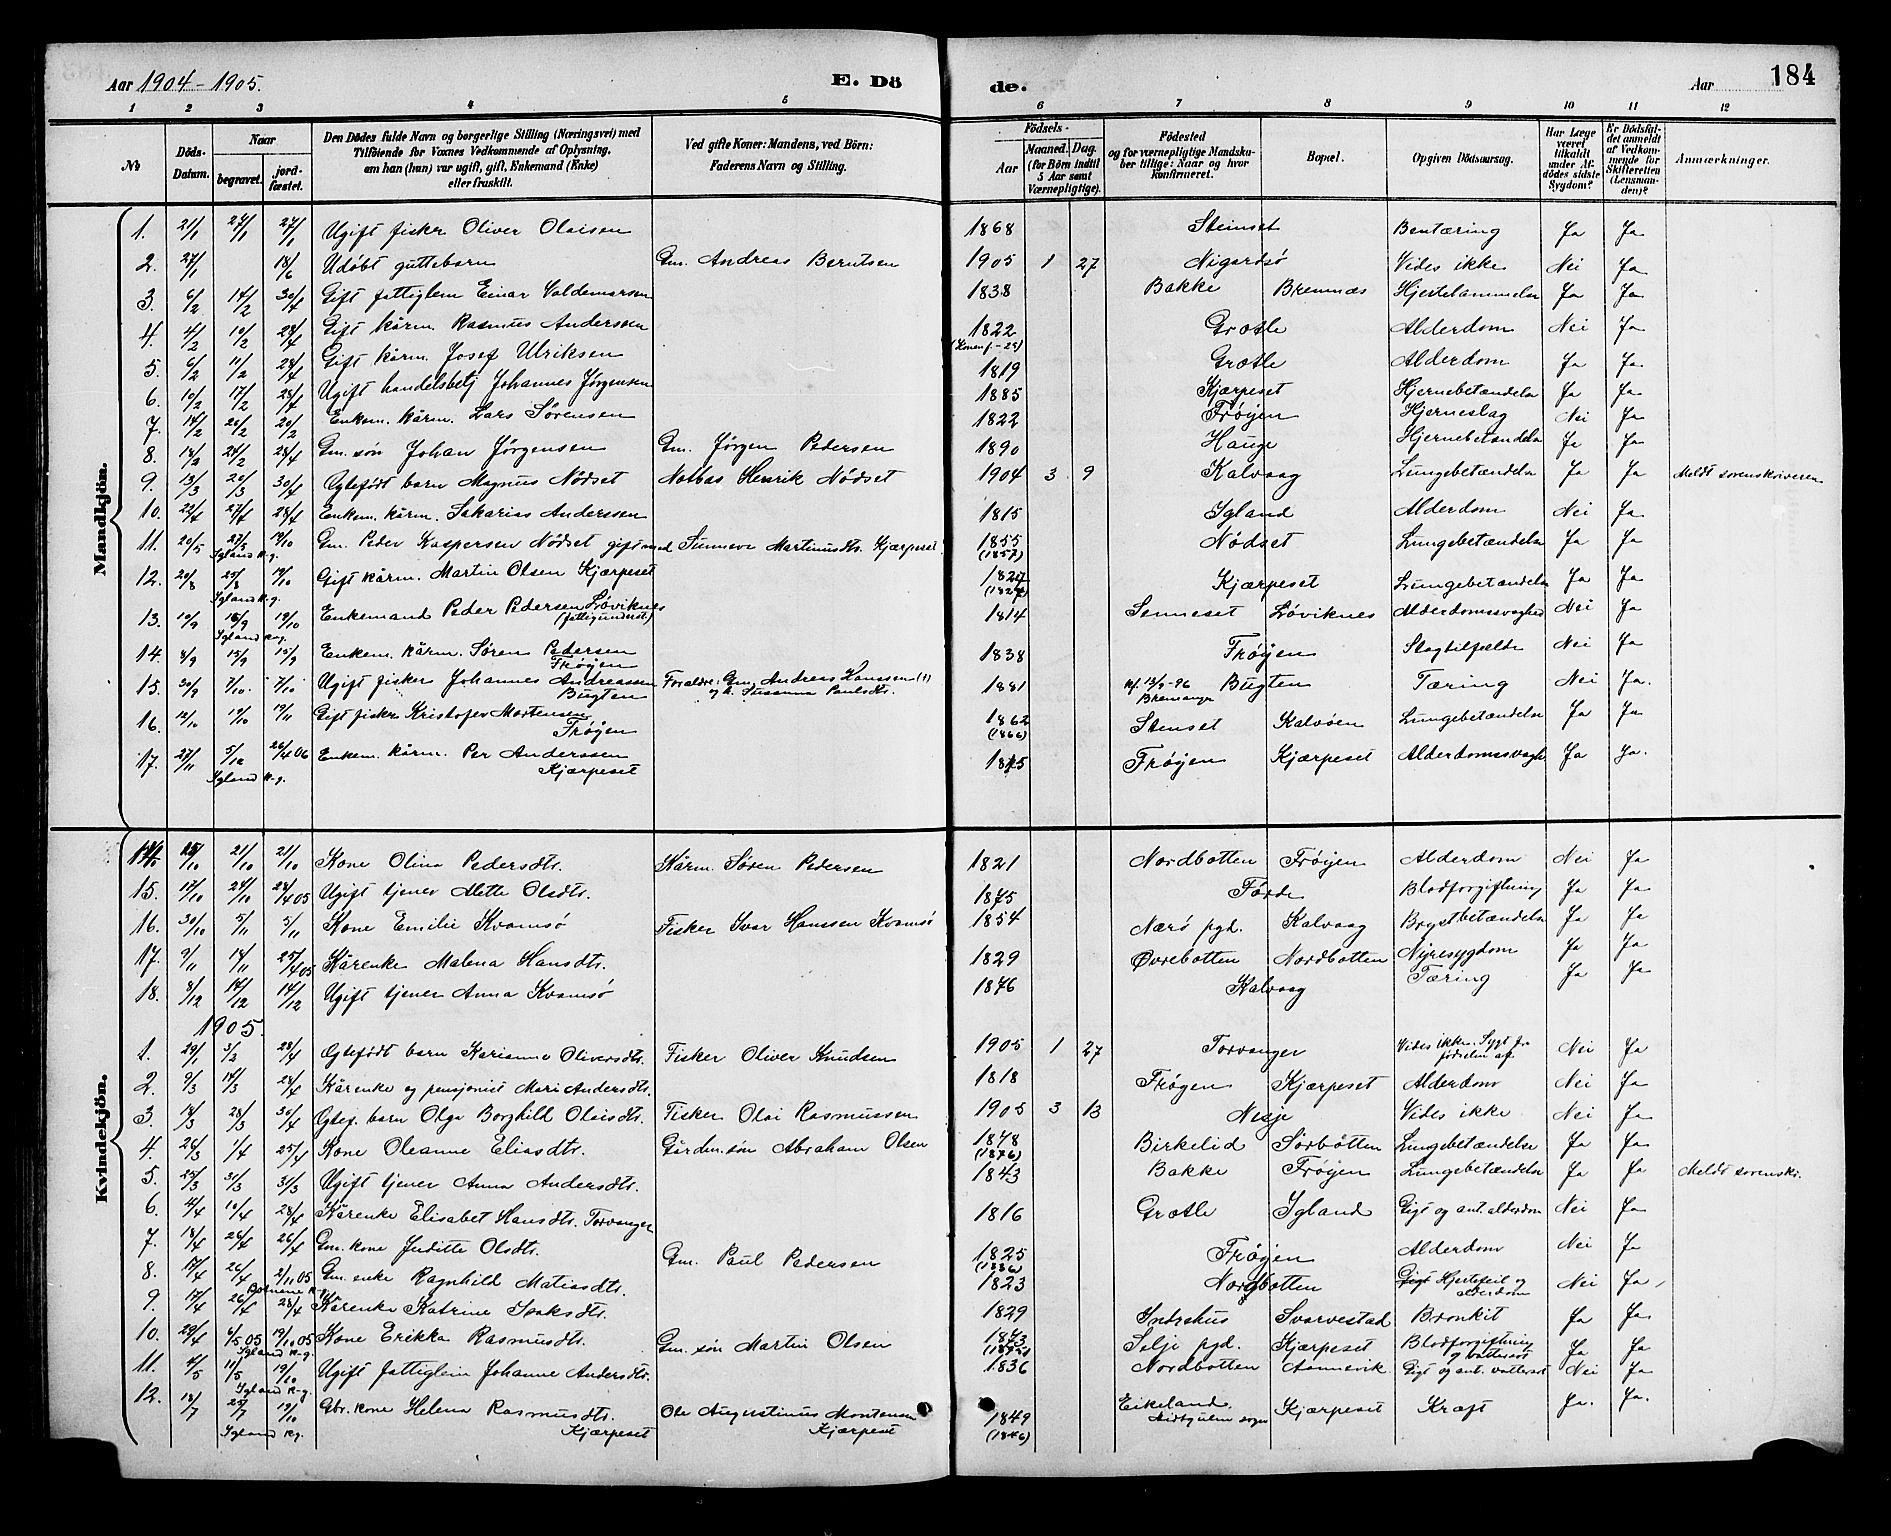 Aar 1904-1905. E. Dö de. Aar 184
1 2 3 4 5 6 7 8 9 10 11 12
№ Döds-Datum. Naar begravet. jord-fæstet. Den Dödes fulde Navn og borgerlige Stilling (Næringsvei) med Tilföiende for Voxnes Vedkommende af Oplysning, om han (hun) var ugift, gift, Enkemand (Enke) eller fraskilt. Ved gifte Koner: Mandens, ved Börn: Faderens Navn og Stilling. Födsels- Aar Maaned. Dag. (for Börn indtil 5 Aar samt Værnepligtige). Födested og for værnepligtige Mandskaber tillige: Naar og hvor Konfirmeret. Bopæl. Opgiven Dödsaarsag. Har Læge været tilkaldt under Afdödes sidste Sygdom? Er Dödsfaldet anmeldt af Vedkommende for Skifteretten (Lensmanden)? Anmærkninger.
Mandkjön.
1. 21/1 24/1 27/1 Ugift fisker Oliver Olaisen 1868 Steinset Bentæring Ja Ja
2. 27/1 18/6 Udøbt guttebarn Gm. Andreas Berntsen 1905 1 27 Nigardsø Vides ikke Nei Ja
3. 6/2 14/2 30/4 Gift fattiglem Einar Valdemarsen 1838 Bakke Bremnæs Hjertelammelse Ja Ja
4. 4/2 10/2 28/4 Gift kårm. Rasmus Anderssen 1822 Grotle Alderdom Nei Ja
5. 6/2 11/2 28/4 Gift kårm. Josef Ulriksen 1819 Grotle Alderdom Ja Ja
6. 10/2 17/2 28/4 Ugift handelsbetj Johannes Jørgensen 1885 Kjærpeset Hjernebetændelse Ja Ja
7. 14/2 20/2 20/2 Enkem. kårm. Lars Sørensen 1822 Frøyen Hjerneslag Nei Ja
8. 18/2 24/2 28/4 Gm. søn Johan Jørgensen Gm. Jørgen Pedersen 1890 Hauge Hjernebetændelse Ja Ja
9. 13/3 20/3 30/4 Ogtefødt barn Magnus Nødset Notbas Henrik Nødset 1904 3 9 Kalvaag Lungebetændelse Ja Ja Meldt sorenskriveren
10. 22/4 27/4 28/4 Enkem. kårm. Sakarias Anderssen 1815 Igland Alderdom Nei Ja
11. 20/5 27/5 19/10 Gm. Peder Kaspersen Nødset gift med Sunneve Martinusdtr. Kjærpeset 1855 Nødset Lungebetændelse Ja Ja
Igland k-g. (1857)
12. 20/8 25/8 19/10 Gift kårm. Martin Olsen Kjærpeset 1827 Kjærpeset Lungebetændelse Ja Ja
Igland k-g.
13. 10/9 16/9 19/10 Enkemand Peder Pedersen Løviknes 1814 Senneset Løviknes Alderdomssvaghed Nei Ja
Igland k-g. (fattigunderst.)
14. 8/9 15/9 15/9 Enkem. kårm. Søren Pedersen 1838 Frøyen Slagtilfælde Nei Ja
Frøyen
15. 30/9 7/10 7/10 Ugift fisker Johannes Andreassen Forældre: Gm. Andreas Hanssen 1881 kf. 13/9-96 Bugten Tæring Nei Ja.
Bugten og k. Susanna Paulsdtr. Bremanger
16. 12/10 19/10 19/11 Gift fisker Kristofer Mortensen 1862 Stenset Kalvøen Lungebetændelse Ja Ja
Frøyen (1866)
17. 27/11 5/12 26/4 06 Enkem. kårm. Per Anderssen 1815 Frøyen Kjærpeset Alderdomssvaghe Ja Ja.
Igland k-g. Kjærpeset
Kvindekjön.
14. 15/10 21/10 21/10 Kone Olina Pedersdtr. Kårm. Søren Pedersen 1821 Nordbotten Frøyen Alderdom Nei Ja
15. 17/10 24/10 28/4 05 Ugift tjener Mette Olsdtr. 1875 Førde Blodforgiftning Ja Ja
16. 30/10 5/11 5/11 Kone Emilie Kvamsø Fisker Ivar Hanssen Kvamsø 1854 Nærø pgd. Kalvaag Brystbetændelse Ja Ja
17. 9/11 14/11 25/4 05 Kårenke Malena Hansdtr. 1829 Øvrebotten Nordbotten Nyresygdom Ja Ja
18. 8/12 14/12 14/12 Ugift tjener Anna Kvamsø 1876 Kalvaag Tæring Ja Ja
1905.
1. 29/1 3/2 28/4 Ogtefødt barn Karianna Oliversdtr. Fisker Oliver Knudsen 1905 1 27 Torvanger Vides ikke. Sygt fra Nei Ja
fødselen af
2. 9/3 14/3 28/4 Kårenke og pensjonist Mari Andersdtr. 1818 Frøyen Kjærpeset Alderdom Nei Ja
3. 18/3 28/3 30/4 Ogtef. barn Olga Borghild Olaisdtr. Fisker Olai Rasmussen 1905 3 13 Nesje Vides ikke Nei Ja
4. 26/3 1/4 25/4 Kone Oleanne Eliasdtr. Gårdm.søn Abraham Olsen 1878 Birkelid Sørbotten Lungebetændelse Ja Ja
(1876)
5. 25/3 31/3 31/3 Ugift tjener Anna Andersdtr. 1843 Bakke Frøyen Lungebetændelse Ja Ja Meldt sorenskr.
6. 4/4 10/4 28/4 Kårenke Elisabet Hansdtr. Torvanger 1816 Grotle Igland Gigt og ant. alderdom Nei Ja
7. 18/4 26/4 26/4 Gm. kone Juditte Olsdtr. Gm. Paul Pedersen 1825 Frøyen Alderdom Nei Ja
8. 17/4 26/4 2/11 05 Gm. enke Ragnhild Matiasdtr. 1823 Nordbotten Gigt Hjertefeil og Nei Ja
alderdom
9. 17/4 26/4 28/4 Kårenke Katrine Isaksdtr. 1829 Indrehus Svarvestad Bronkit Ja Ja
10. 29/4 6/5 05 19/10 05 Kone Erikka Rasmusdtr. Gm. søn Martin Olsen 1873 Selje pgd. Kjærpeset Blodforgiftning Ja Ja
Igland k-g. og vattersot
11. 4/5 11/5 19/10 Ugift fattiglem Johanne Andersdtr. 1836 Nordbotten Aannevik Gigt og ant. vattersot Nei Ja
Igland k-g.
12. 18/7 25/7 19/10 Gbr. kone Helena Rasmusdtr. Ole Augustinus Mortensen 1849 Eikeland Kjærpeset Kræft Ja. Ja.
Igland kg. Kjærpeset Kjærpeset (1846)